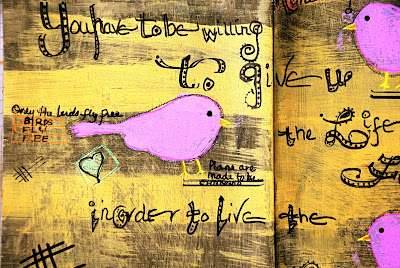 You have to be willing
to give up
Only the birds fly free
BIRDS
FLY
FREE
the Life
Plans are
made to be
in order to live the